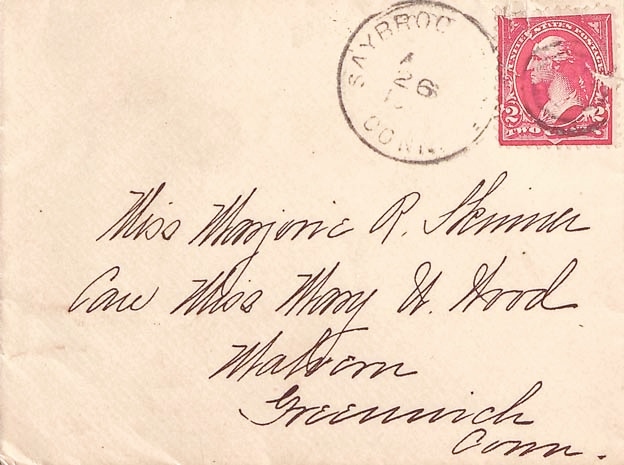 SAYBROO
26
CONN.
UNITED STATES POSTAGE
2 2
TWO
Miss Marjorie R. Skinner
Care Miss Mary H. Hood
Malvern
Greenwich
Conn.